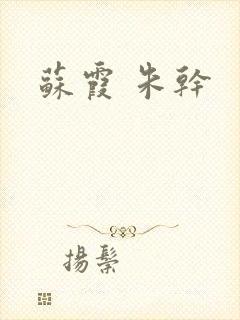 蘇霞 朱幹
揚鬃